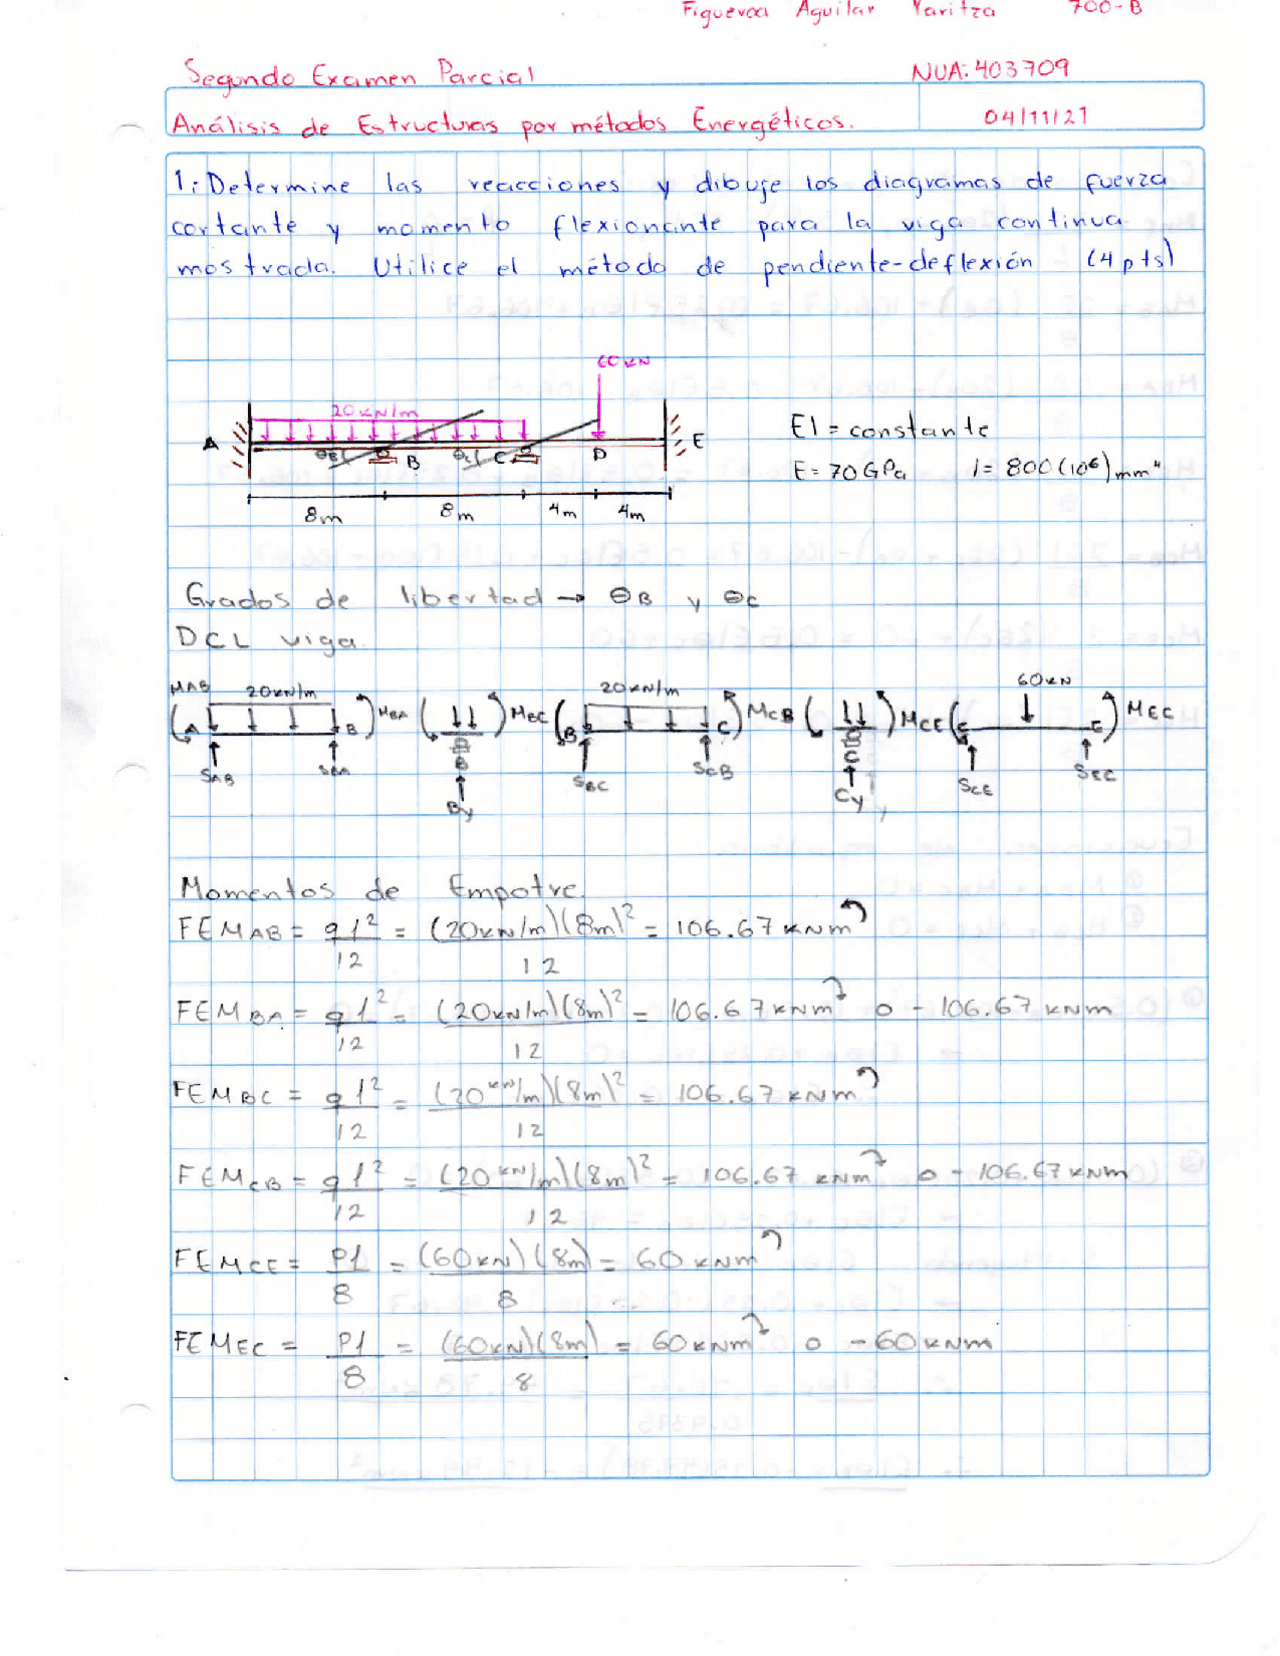 Figueroa Aguilar Yaritza 700-B
Segundo Examen Parcial NUA: 403709
Análisis de Estructuras por métodos Energéticos. 04/11/21
1: Determine las reacciones y dibuje los diagramas de fuerza
cortante y momento flexionante para la viga continua
mostrada. Utilice el método de pendiente-deflexión (4 pts)
60 kN
20 kN/m
A θB B θC C D E
EI = constante
E = 70 GPa I = 800(10⁶) mm⁴
8m 8m 4m 4m
Grados de libertad → θB y θC
DCL viga.
MAB 20kN/m 20kN/m 60kN
A B MBA MBC B C MCB MCE C E MEC
SAB SBA B SBC SCB C SCE SEC
By Cy
Momentos de Empotre.
FEMAB = ql²/12 = (20kN/m)(8m)²/12 = 106.67 kNm
FEMBA = ql²/12 = (20kN/m)(8m)²/12 = 106.67 kNm o -106.67 kNm
FEMBC = ql²/12 = (20kN/m)(8m)²/12 = 106.67 kNm
FEMCB = ql²/12 = (20kN/m)(8m)²/12 = 106.67 kNm o -106.67 kNm
FEMCE = Pl/8 = (60kN)(8m)/8 = 60 kNm
FEMEC = Pl/8 = (60kN)(8m)/8 = 60kNm o -60kNm